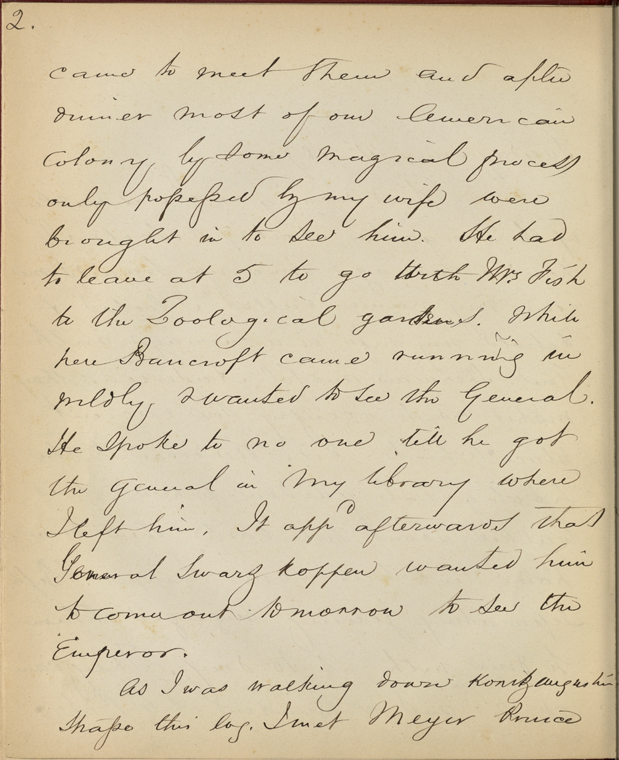 2.
came to meet them and after
dinner most of our American
Colony, by some magical process
only possessed by my wife were
brought in to see him. He had
to leave at 5 to go with Mrs Fish
to the Zoological gardens. While
here Bancroft came running in
wildly, & wanted to see the General.
He spoke to no one till he got
the General in my library where
I left him. It appd afterwards that
General Swarz koppen wanted him
to come out tomorrow to see the
Emperor.
As I was walking down
this I met Meyer Prince